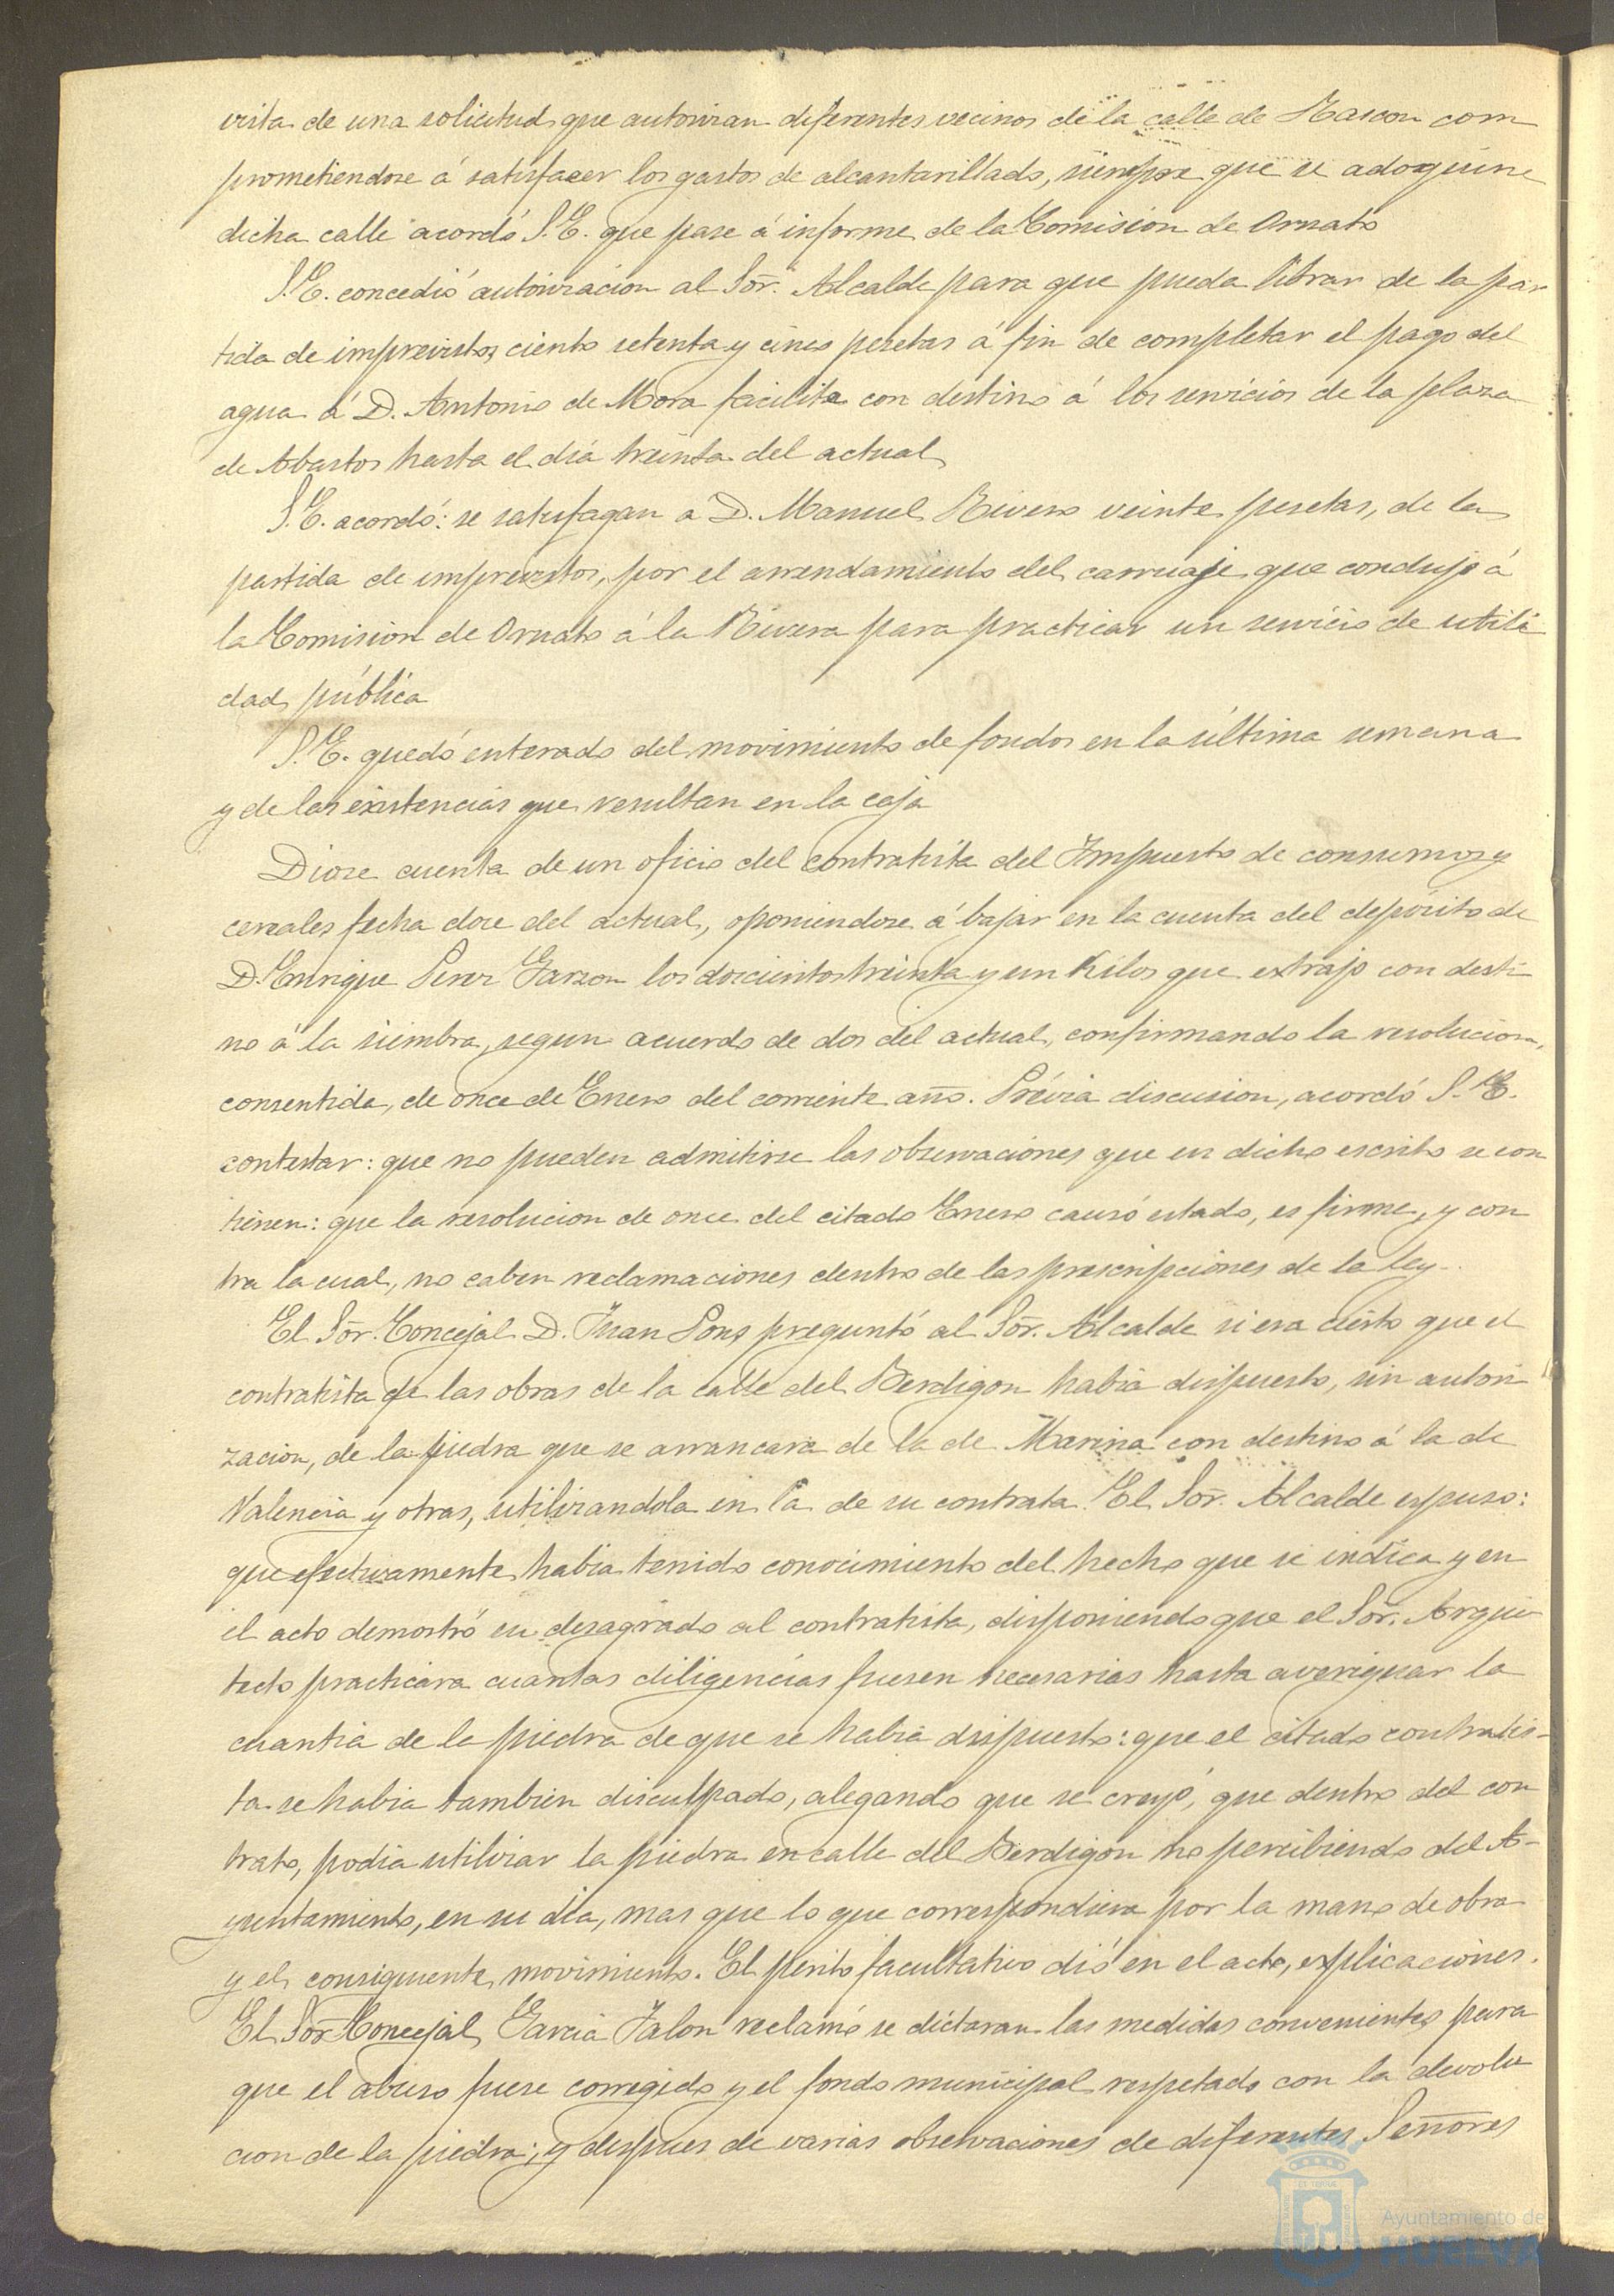 vista de una solicitud que autorizan diferentes vecinos de la calle de Rascon com
prometiendose á satisfacer los gastos de alcantarillado, siempre que se adoquine
dicha calle acordó S.E. que pase á informe de la Comision de Ornato
S.E. concedió autorizacion al Sor. Alcalde para que pueda librar de la par
tida de imprevistos ciento setenta y cinco pesetas á fin de completar el pago del
agua á D. Antonio de Mora facilita con destino á los servicios de la plaza
de Abastos hasta el dia treinta del actual
S.E. acordó: se satisfagan a D. Manuel Rivero veinte pesetas, de la
partida de imprevistos, por el arrendamiento del carruaje que condujo á
la Comision de Ornato á la Rivera para practicar un servicio de utili
dad pública
S.E. quedó enterado del movimiento de fondos en la última semana
y de las existencias que resultan en la caja
Diose cuenta de un oficio del contratista del Impuesto de consumos y
cereales fecha doce del actual, oponiendose á bajar en la cuenta del deposito de
D. Enrique Perez Garzon los doscientos treinta y un Kilos que extrajo con desti
no á la siembra, segun acuerdo de dos del actual, confirmando la resolucion,
consentida, de once de Enero del corriente año. Prévia discusion, acordó S.E.
contestar: que no pueden admitirse las observaciones que en dicho escrito se con
tienen: que la resolucion de once del citado Enero causó estado, es firme, y con
tra la cual, no caben reclamaciones dentro de las prescripciones de la ley.
El Sor. Concejal D. Juan Pons preguntó al Sor. Alcalde si era cierto que el
contratista de las obras de la calle del Berdigon habia dispuesto, sin autori
zacion, de la piedra que se arrancara de la de Marina con destino á la de
Valencia y otras, utilizandola en la de su contrata. El Sor. Alcalde espuso:
que efectivamente habia tenido conocimiento del hecho que se indica y en
el acto demostró su desagrado al contratista, disponiendo que el Sor. Arqui
tecto practicara cuantas diligencias fuesen necesarias hasta averiguar la
cuantia de la piedra de que se habia dispuesto: que el citado contratis-
ta se habia tambien disculpado, alegando que se creyó, que dentro del con
trato, podia utilizar la piedra en calle del Berdigon no percibiendo del A-
yuntamiento, en su dia, mas que lo que correspondiera por la mano de obra
y el consiguiente movimiento. El perito facultativo dió en el acto, explicaciones.
El Sor. Concejal Garcia Jalon reclamó se dictaran las medidas convenientes para
que el abuso fuese corregido y el fondo municipal respetado con la devolu
cion de la piedra; y despues de varias observaciones de diferentes Señores
Ayuntamiento de
HUELVA